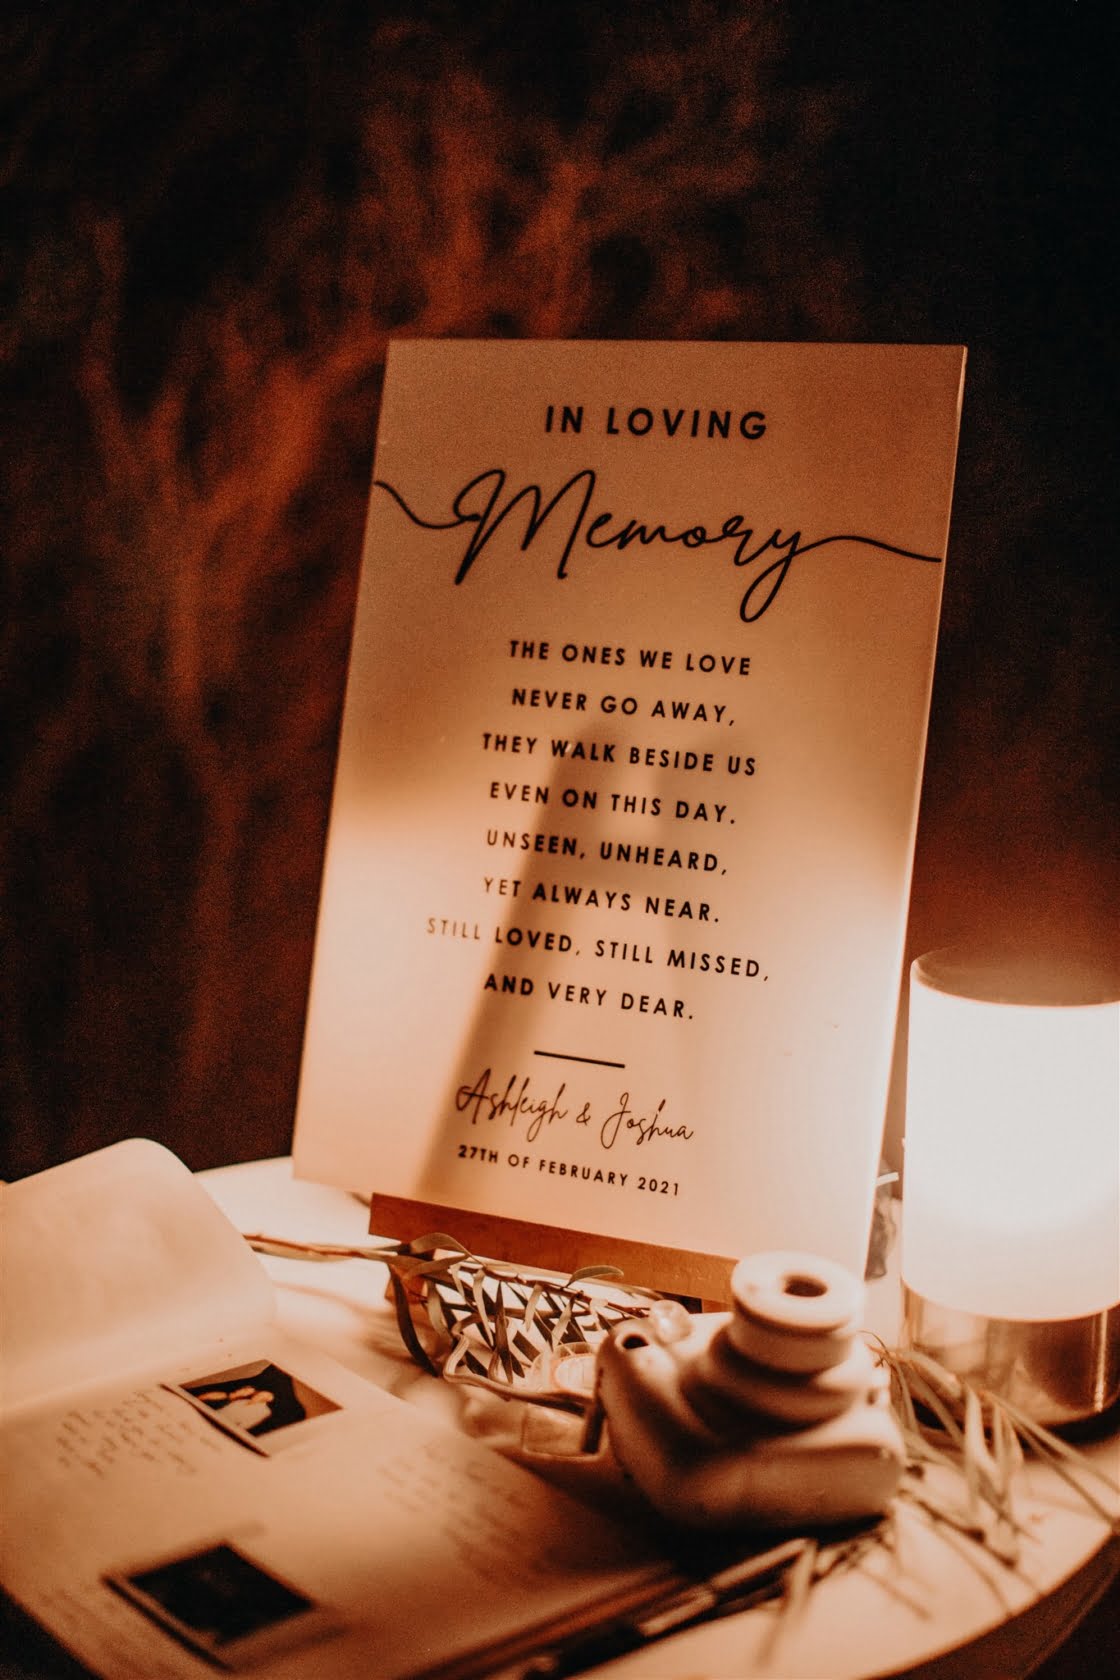 IN LOVING
Memory
THE ONES WE LOVE
NEVER GO AWAY,
THEY WALK BESIDE US
EVEN ON THIS DAY.
UNSEEN, UNHEARD,
YET ALWAYS NEAR.
STILL LOVED, STILL MISSED,
AND VERY DEAR.
Ashleigh & Joshua
27TH OF FEBRUARY 2021